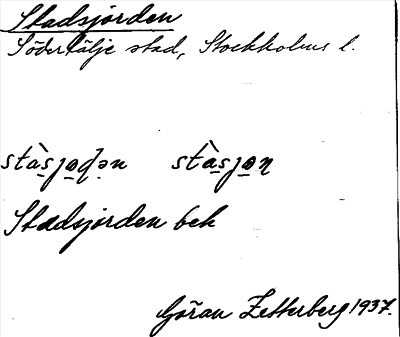 Stadsjorden
Södertälje stad, Stockholms l.
stàsjo̤d̤ən stàsjo̤n
Stadsjorden bek
Göran Zetterberg 1937.